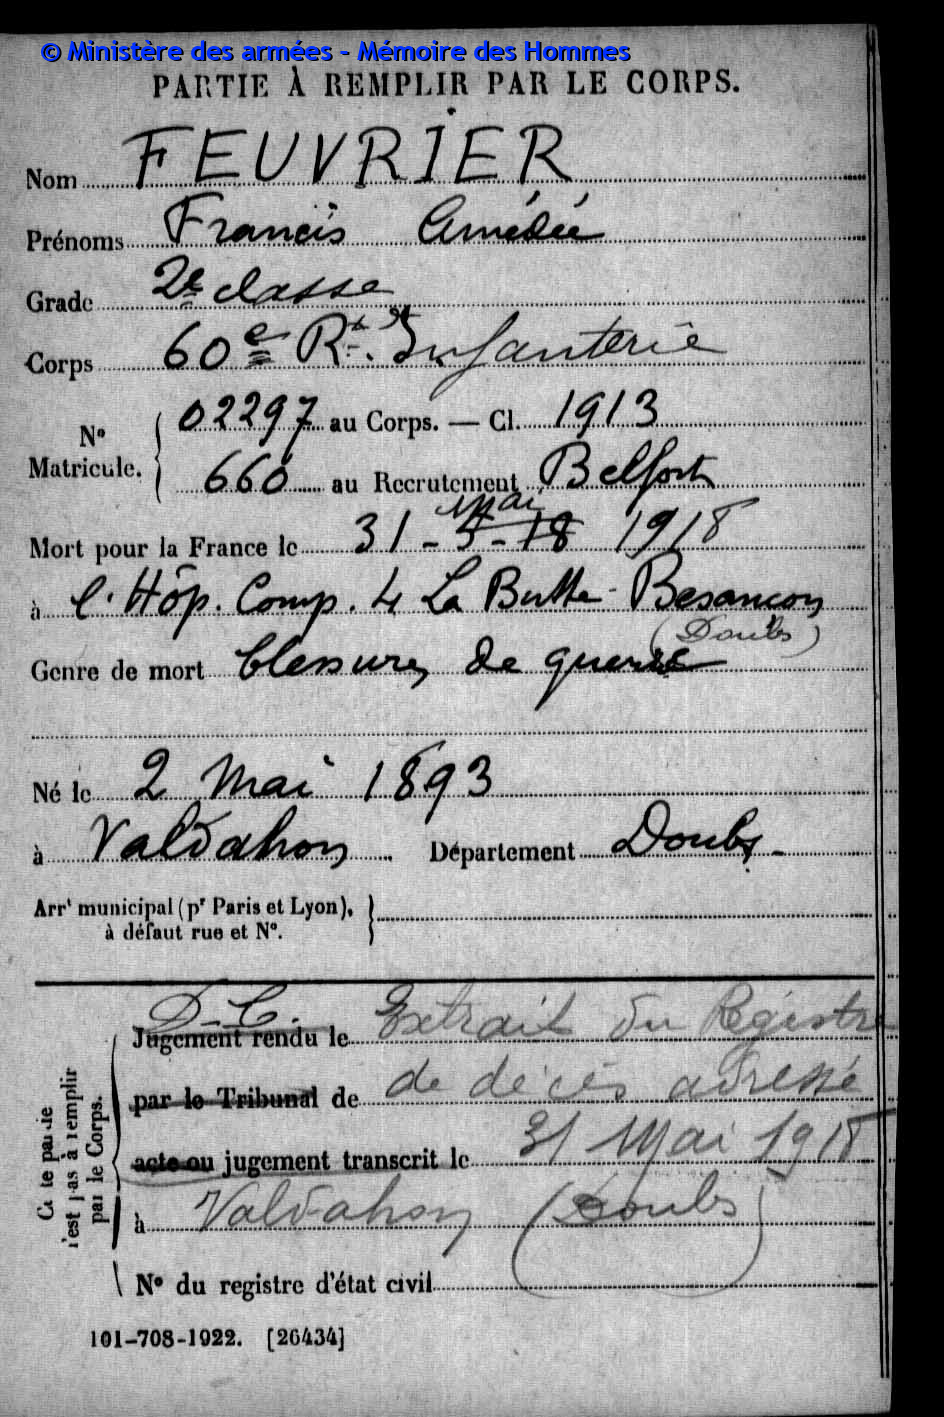 © Ministère des armées - Mémoire des Hommes
PARTIE À REMPLIR PAR LE CORPS.
Nom FEUVRIER
Prénoms Francis Amédée
Grade 2e classe
Corps 60e Rt d'Infanterie
No Matricule. 02297 au Corps. — Cl. 1913
660 au Recrutement Belfort
mai
Mort pour la France le 31 - 5 - 18 1918
à l'Hôp. Comp. 4 La Butte - Besançon
(Doubs)
Genre de mort blessures de guerre
Né le 2 Mai 1893
à Valdahon Département Doubs
Arrt municipal (pr Paris et Lyon),
à défaut rue et No.
D.C.
Jugement rendu le Extrait du Registre
par le Tribunal de de décès adressé
acte ou jugement transcrit le 31 Mai 1918
à Valdahon (Doubs)
No du registre d'état civil
Cette partie n'est pas à remplir par le Corps.
101-708-1922. [26434]